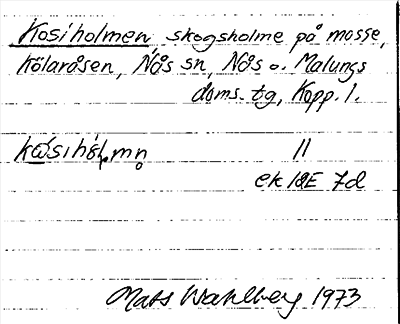 Kosiholmen skogsholme på mosse,
Kölaråsen, Nås sn, Nås o. Malungs
doms. tg, Kopp. l.
ek 12E 7d
Mats Wahlberg 1973